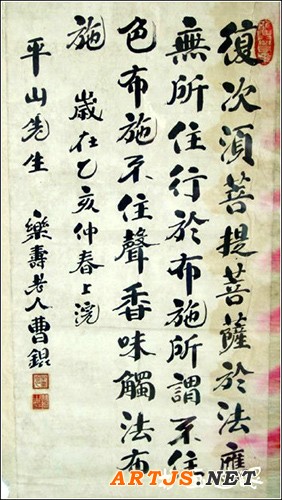 復次須菩提菩薩於法應
無所住行於布施所謂不住
色布施不住聲香味觸法布
施
歲在乙亥仲春上浣
平山先生
樂壽老人曹錕
ARTJS.NET